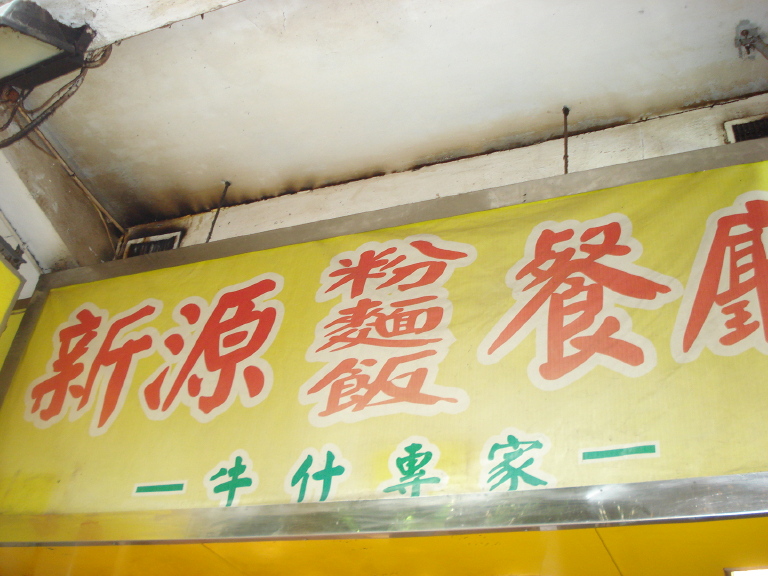 新源粉麵飯餐廳
一牛什專家一